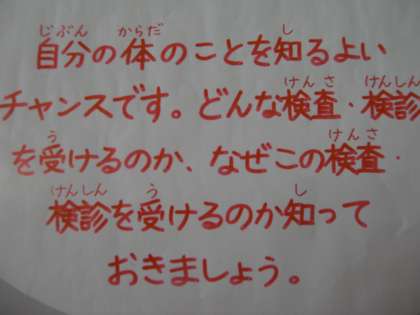 自分の体のことを知るよい
チャンスです。どんな検査・検診
を受けるのか、なぜこの検査・
検診を受けるのか知って
おきましょう。